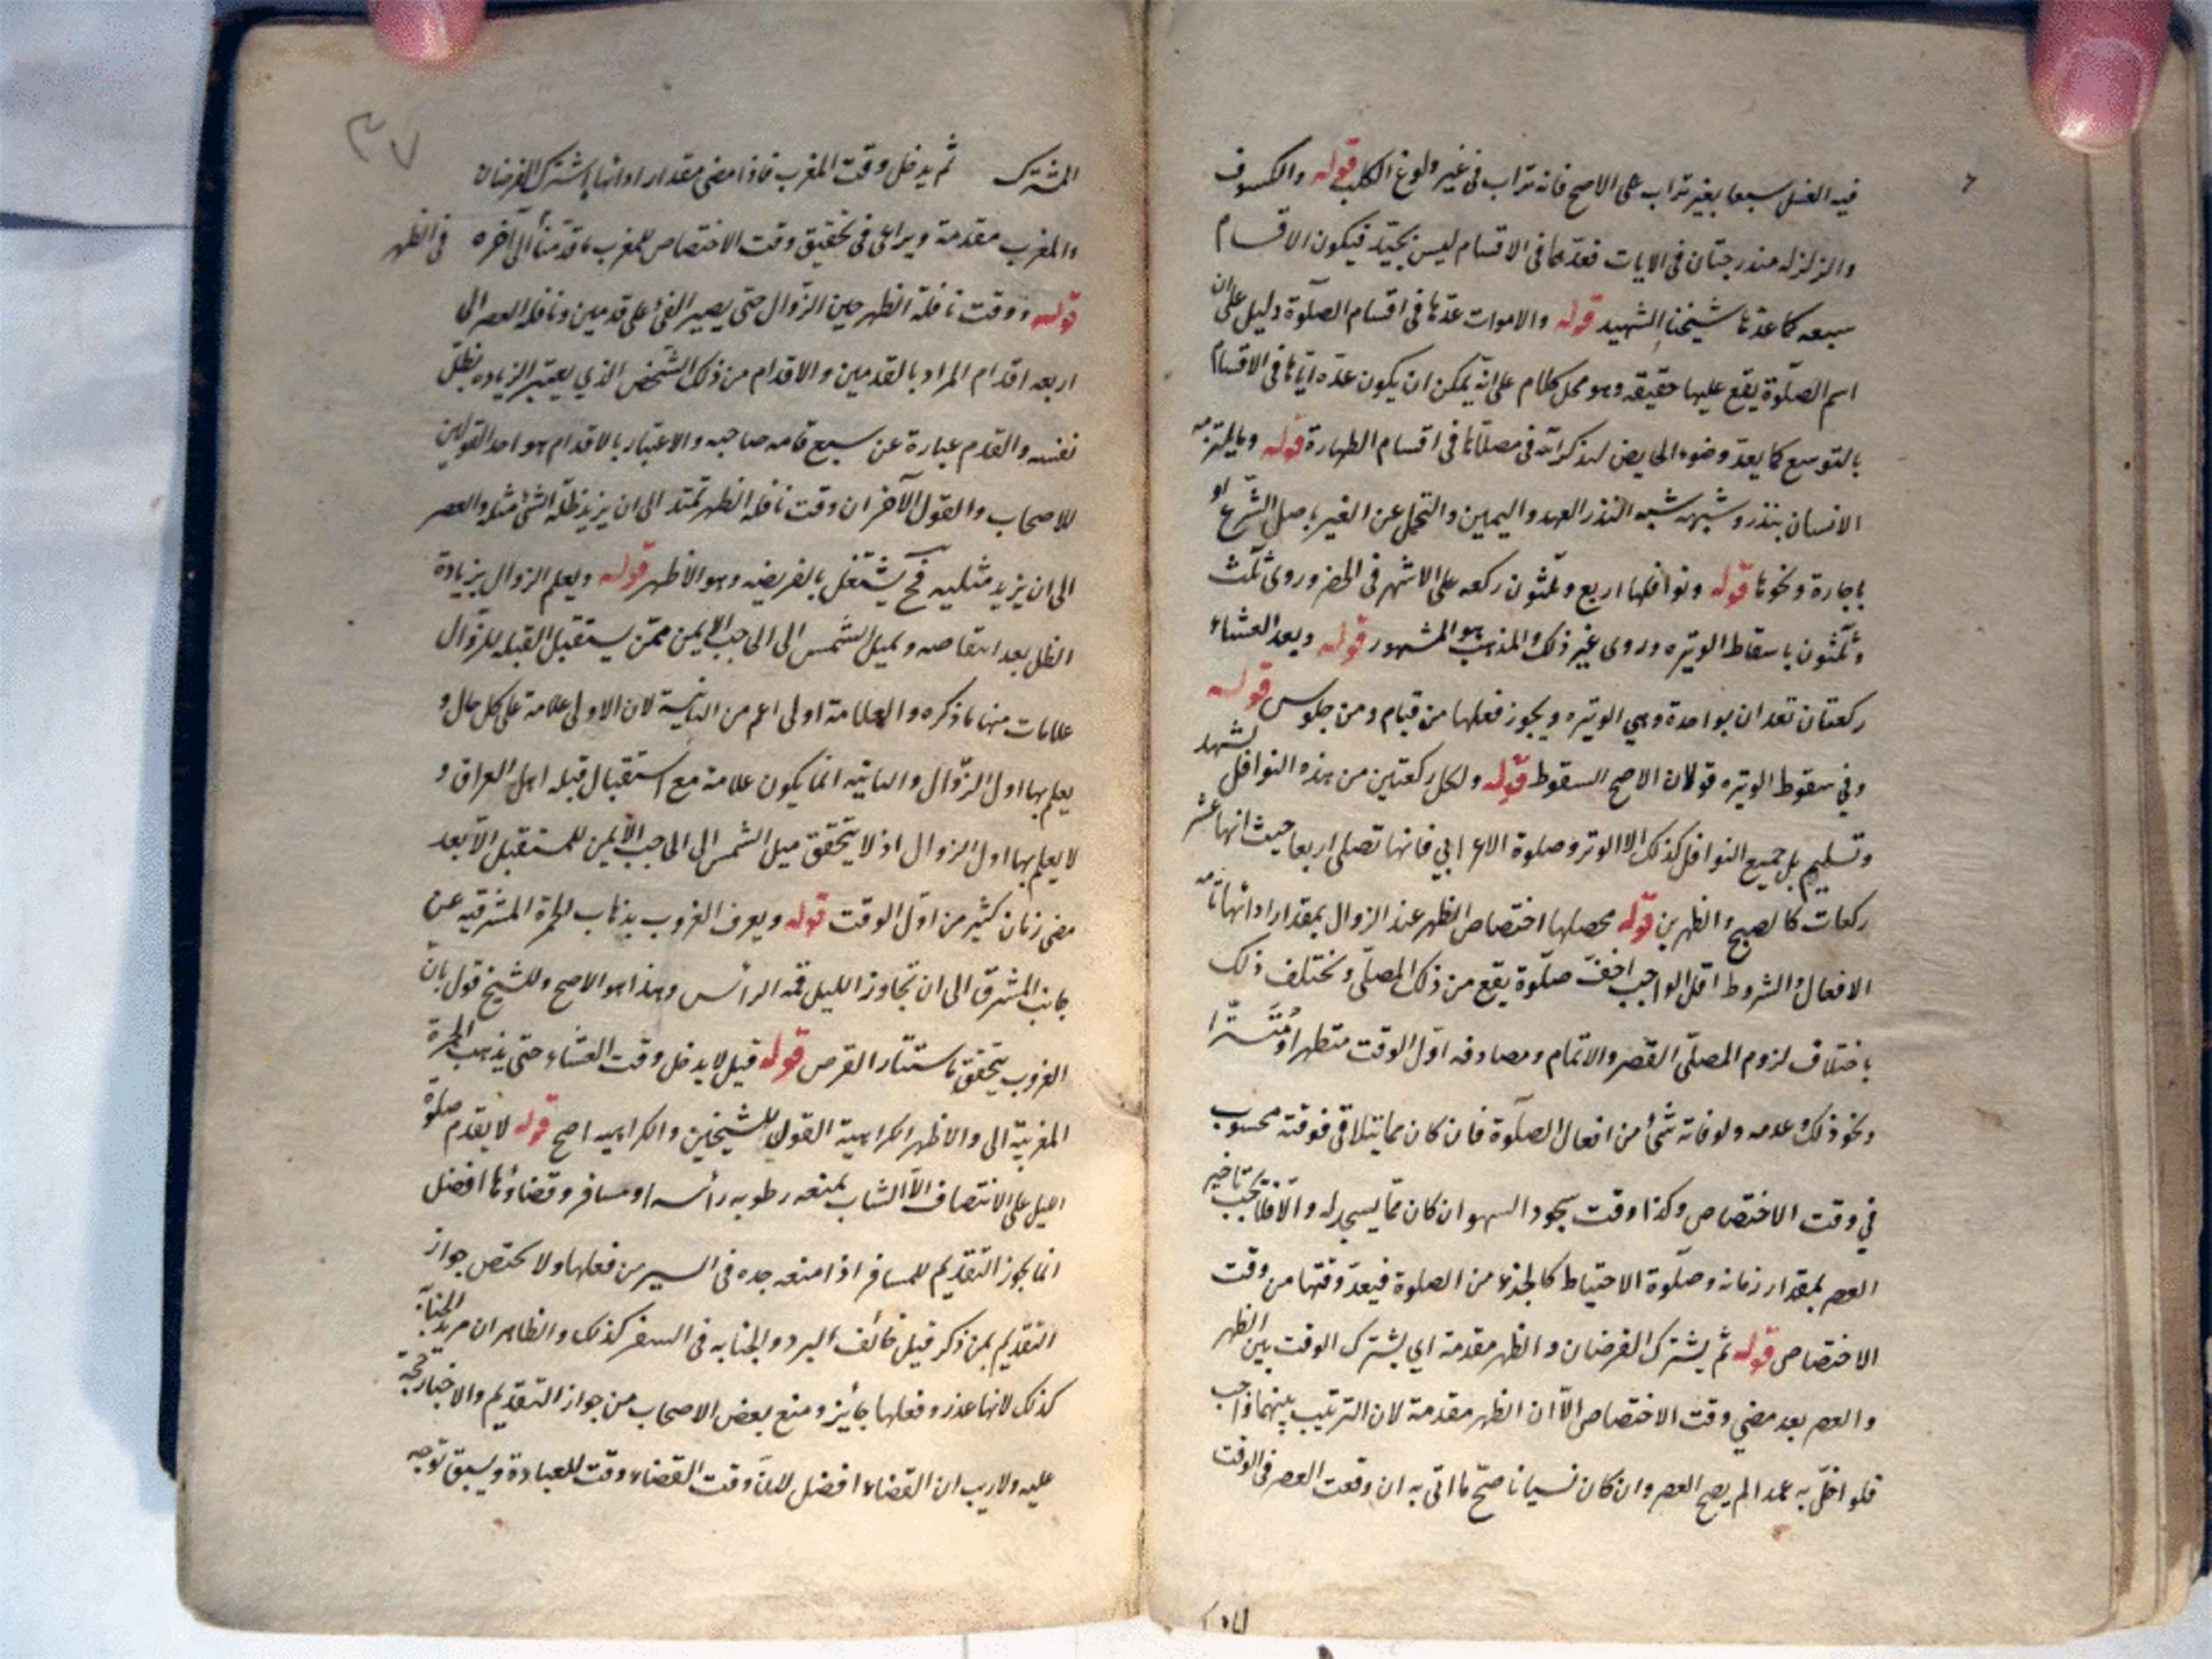 فيه الغسل سبعا بغير تراب على الاصح فانه تراب في غير ولوغ الكلب قوله والكسوف
والزلزله مندرجتان في الايات فعدهما في الاقسام ليس بجيّد فيكون الاقسام
سبعه كما عدّها شيخنا الشهيد قوله والاموات عدّها في اقسام الصلوة دليل على ان
اسم الصلوة يقع عليها حقيقه وهو محل كلام على انه يمكن ان يكون عدّه اياها في الاقسام
بالتوسع كما يعدّ وضوء الحايض لتذكر الله في مصلاّها في اقسام الطهارة قوله وما يلتزمه
الانسان بنذر وشبهه شبه النذر العهد واليمين والتحمل عن الغير باصل الشرع او
باجارة ونحوها قوله ونوافلها اربع وثلثون ركعه على الاشهر في الحضر وروى ثلث
وثلثون باسقاط الوتيره وروى غير ذلك والمذهب هو المشهور قوله وبعد العشاء
ركعتان تعدان بواحدة وهي الوتيره ويجوز فعلها من قيام ومن جلوس قوله
وفي سقوط الوتيره قولان الاصح السقوط قوله ولكل ركعتين من هذه النوافل تشهد
وتسليم بل جميع النوافل كذلك الا الوتر وصلوة الاعرابي فانها تصلى اربعا حيث انها عشر
ركعات كالصبح والظهرين قوله محصلها اختصاص الظهر عند الزوال بمقدار ادائها تامه
الافعال والشروط اقل الواجب اخفّ صلوة يقع من ذلك المصلّى ويختلف ذلك
باختلاف لزوم المصلّى القصر والاتمام ومصادفه اوّل الوقت متطهرا ومتستّرا
ونحو ذلك وعدمه ولو فاته شئ من افعال الصلوة فان كان مما يتلاقى فوقته محسوب
في وقت الاختصاص وكذا وقت سجود السهو ان كان ممّا يسجد له والّا فلا يجب تاخير
العصر بمقدار زمانه وصلوة الاحتياط كالجزء من الصلوة فيعدّ وقتها من وقت
الاختصاص قوله ثم يشترك الفرضان والظهر مقدمة اي يشترك الوقت بين الظهر
والعصر بعد مضي وقت الاختصاص الّا ان الظهر مقدمة لان الترتيب بينهما واجب
فلو اخلّ به عمدا لم يصح العصر وان كان نسيانا صحّ ما اتى به ان وقعت العصر في الوقت
٣٧
المشترك ثم يدخل وقت المغرب فاذا مضى مقدار ادائها اشترك الفرضان
والمغرب مقدمة ويراعى في تحقيق وقت الاختصاص للمغرب ما قدّمناه الى آخره في الظهر
قوله ووقت نافلة الظهر حين الزّوال حتى يصير الفئ على قدمين ونافله العصر الى
اربعه اقدام المراد بالقدمين والاقدام من ذلك الشخص الذي يعتبر الزياده بظلّ
نفسه والقدم عبارة عن سبع قامه صاحبه والاعتبار بالاقدام هو احد القولين
للاصحاب والقول الآخر ان وقت نافله الظهر تمتد الى ان يزيد ظلّ الشئ مثله والعصر
الى ان يزيد مثليه فح يشتغل بالفريضه وهو الاظهر قوله ويعلم الزوال بزيادة
الظل بعد انتقاصه وبميل الشمس الى الحاجب الايمن ممّن يستقبل القبله للزّوال
علامات منها ما ذكره والعلامة اولى اعم من الثانية لان الاولى علامة على كل حال و
يعلم بها اول الزّوال والثانيه انما يكون علامة مع استقبال قبله اهل العراق و
لا يعلم بها اول الزوال اذ لا يتحقق ميل الشمس الى الحاجب الايمن للمستقبل الّا بعد
مضى زمان كثير من اوّل الوقت قوله ويعرف الغروب بذهاب الحمرة المشرقيه عن
جانب المشرق الى ان تجاوز الليل قمه الرأس وهذا هو الاصح وللشيخ قول بان
الغروب يتحقق باستتار القرص قوله قيل لا يدخل وقت العشاء حتى يذهب الحمرة
المغربيّة الى والاظهر الكراهية القول للشيخين والكراهيه اصح قوله لا يقدم صلوة
الليل على الانتصاف الّا الشاب يمنعه رطوبه رأسه او مسافر وقضاؤها افضل
انما يجوز التقديم للمسافر اذا منعه جده في السير من فعلها ولا يختص جواز
التقديم بمن ذكر قيل خائف البرد والجنابه في السفر كذلك والظاهر ان مريد الجنابة
كذلك لانها عذر وفعلها جايز ومنع بعض الاصحاب من جواز التقديم والاخبار حجّة
عليه ولا ريب ان القضاء افضل لانّ وقت القضاء وقت للعبادة ويسبق توجه